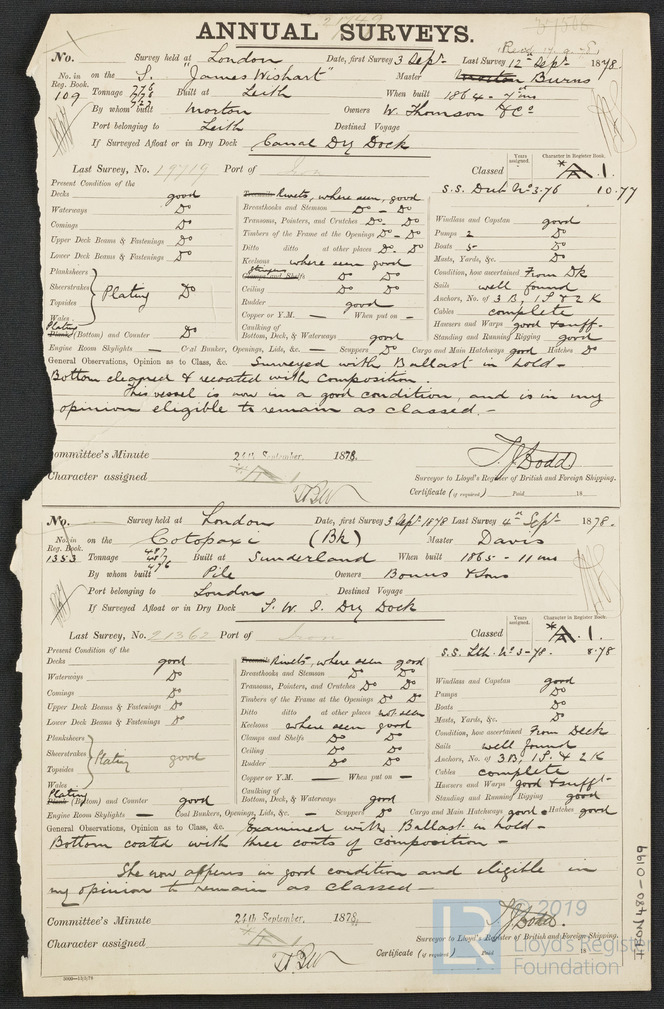 ANNUAL SURVEYS.
Rec'd 17.9.78
No. Survey held at London Date, first Survey 3 Sept- Last Survey 12th Sept- 1878.
No. in on the S. "James Wishart" Master Burns
Reg. Book.
109 Tonnage 776 Built at Leith When built 1864 - 7 mo
By whom built Morton Owners W. Thomson & Co
Port belonging to Leith Destined Voyage
If Surveyed Afloat or in Dry Dock Canal Dry Dock
Last Survey, No. 19719 Port of Iron Classed Years assigned. Character in Register Book. *A.1.
S.S. Dub. No 3-76 10.77
Present Condition of the
Decks good
Waterways Do
Comings Do
Upper Deck Beams & Fastenings Do
Lower Deck Beams & Fastenings Do
Planksheers
Sheerstrakes
Topsides
Wales
Plating Do
Plating
Plank (Bottom) and Counter Do
Treenails Rivets, where seen, good
Breasthooks and Stemson Do - Do
Transoms, Pointers, and Crutches Do - Do
Timbers of the Frame at the Openings Do - Do
Ditto ditto at other places Do - Do
Keelsons where seen good
Stringers
Clamps and Shelfs Do Do
Ceiling Do Do
Rudder good
Copper or Y.M. — When put on -
Caulking of
Bottom, Deck, & Waterways good
Windlass and Capstan good
Pumps 2 Do
Boats 5 Do
Masts, Yards, &c. Do
Condition, how ascertained From Dk
Sails well found
Anchors, No. of 3 B, 1 S & 2 K
Cables complete
Hawsers and Warps good & suff-
Standing and Running Rigging good
Engine Room Skylights — Coal Bunker, Openings, Lids, &c. — Scuppers Do Cargo and Main Hatchways good Hatches Do
General Observations, Opinion as to Class, &c. Surveyed with Ballast in hold -
Bottom cleaned & recoated with Composition.
This vessel is now in a good condition, and is in my
opinion eligible to remain as classed. -
Committee's Minute 24th September, 1878.
Character assigned *A 1
T. J. Dodd
Surveyor to Lloyd's Register of British and Foreign Shipping.
Certificate (if required) Paid 18
No. Survey held at London Date, first Survey 3 Sept 1878 Last Survey 4th Sept- 1878.
No. in on the Cotopaxi (Bk) Master Davis
Reg. Book.
1353 Tonnage Built at Sunderland When built 1865 - 11 mo
By whom built Pile Owners Bonus & Sons
Port belonging to London Destined Voyage
If Surveyed Afloat or in Dry Dock S. W. I. Dry Dock
Last Survey, No. 21362 Port of Iron Classed Years assigned. Character in Register Book. *A.1.
S.S. Lth. No 3-78. 8.78
Present Condition of the
Decks good
Waterways Do
Comings Do
Upper Deck Beams & Fastenings Do
Lower Deck Beams & Fastenings Do
Planksheers
Sheerstrakes
Topsides
Wales
Plating good
Plating
Plank (Bottom) and Counter good
Treenails Rivets, where seen good
Breasthooks and Stemson Do Do
Transoms, Pointers, and Crutches Do Do
Timbers of the Frame at the Openings Do Do
Ditto ditto at other places not seen
Keelsons where seen good
Clamps and Shelfs Do Do
Ceiling Do Do
Rudder Do Do
Copper or Y.M. — When put on -
Caulking of
Bottom, Deck, & Waterways good
Windlass and Capstan good
Pumps Do
Boats Do
Masts, Yards, &c. Do
Condition, how ascertained From Deck
Sails well found
Anchors, No. of 3 B, 1 S. & 2 K
Cables complete
Hawsers and Warps good & suff-
Standing and Running Rigging good
Engine Room Skylights — Coal Bunkers, Openings, Lids, &c. - Scuppers Do Cargo and Main Hatchways good Hatches good
General Observations, Opinion as to Class, &c. Examined with Ballast in hold -
Bottom coated with three coats of composition -
She now appears in good condition and eligible in
my opinion to remain as classed -
Committee's Minute 24th September, 1878.
Character assigned *A 1
T. J. Dodd.
Surveyor to Lloyd's Register of British and Foreign Shipping.
Certificate (if required) Paid 18
© 2019
LR Lloyd's Register
Foundation
HECROS